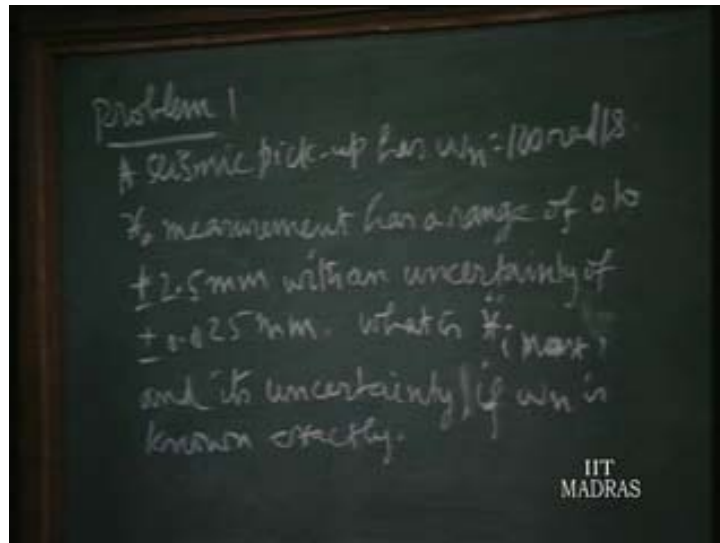 Problem 1
A seismic pick-up has ωn = 100 rad/s.
x₀ measurement has a range of 0 to
±2.5mm with an uncertainty of
±0.025mm. what is ẍi (max)
and its uncertainty, if ωn is
known exactly.
IIT
MADRAS